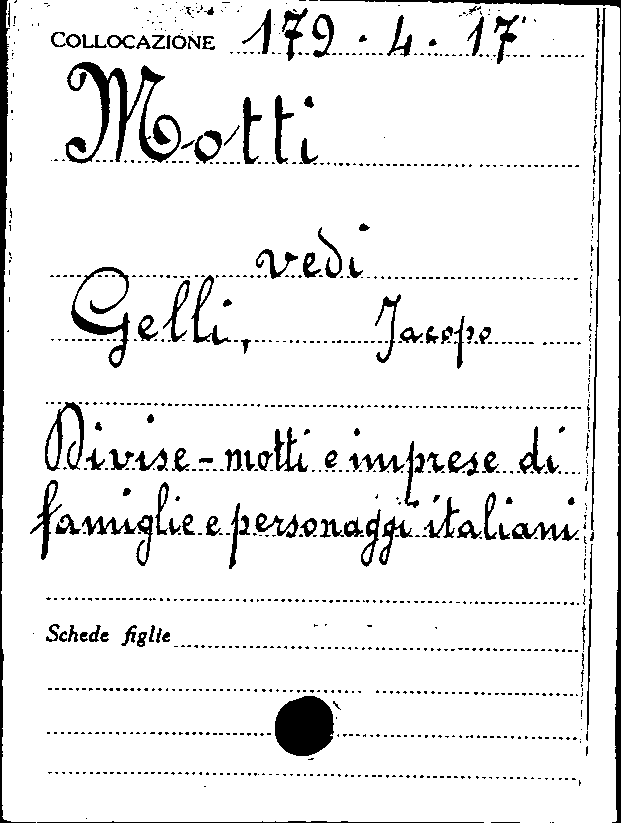 COLLOCAZIONE 179.4.17
Motti
vedi
Gelli, Jacopo
Divise-motti e imprese di
famiglie e personaggi italiani
Schede figlie